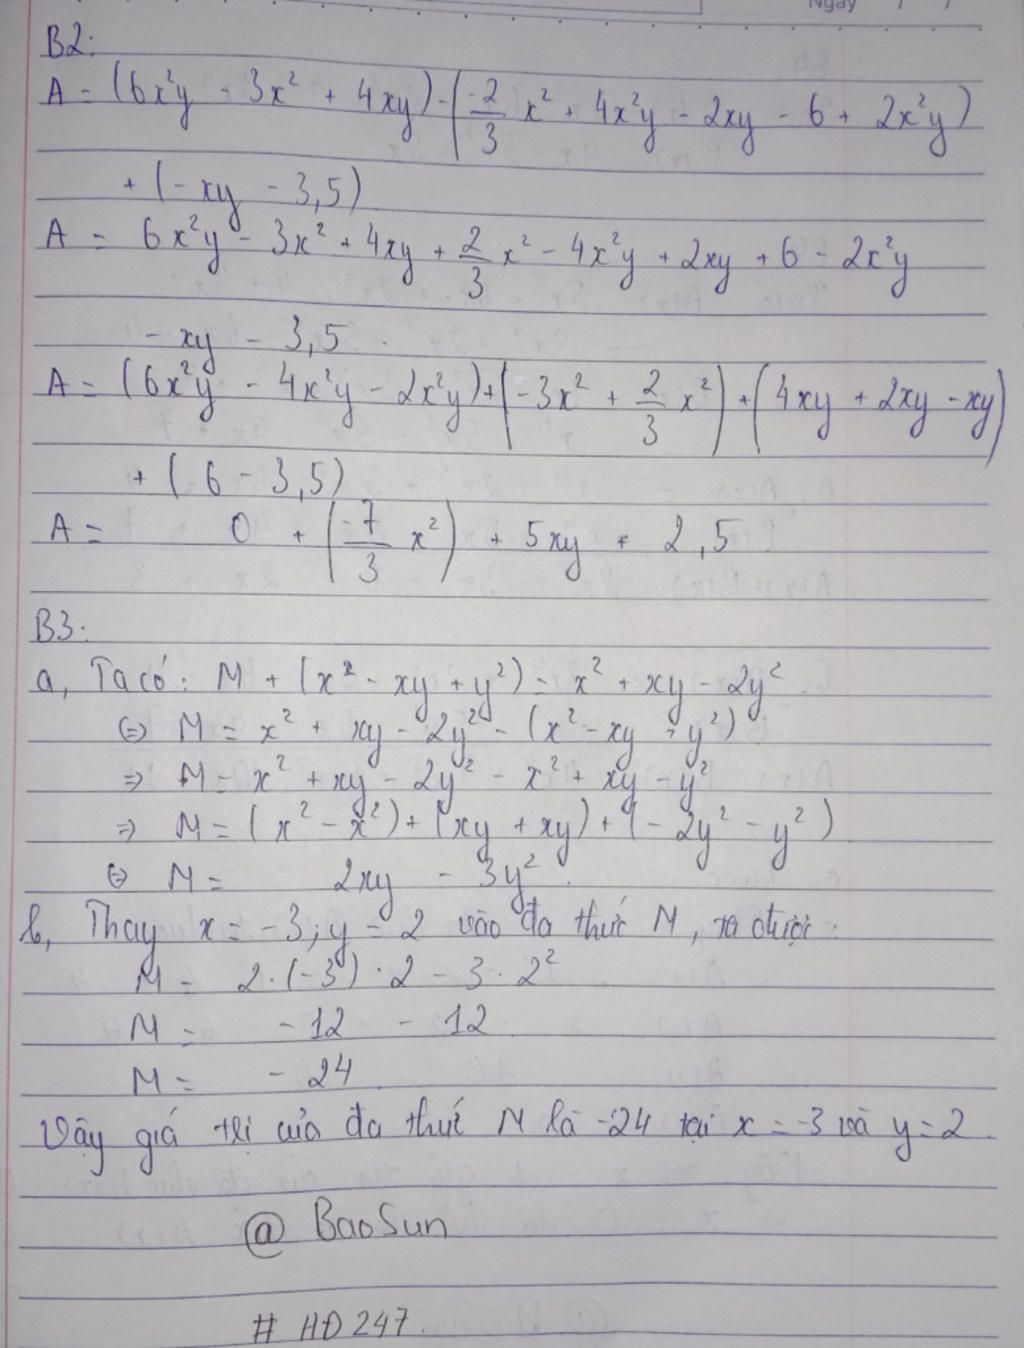 Ngày / /
B2:
A = (6x²y - 3x² + 4xy) - (-2/3 x² + 4x²y - 2xy - 6 + 2x²y)
+ (-xy - 3,5)
A = 6x²y - 3x² + 4xy + 2/3 x² - 4x²y + 2xy + 6 - 2x²y
- xy - 3,5.
A = (6x²y - 4x²y - 2x²y) + (-3x² + 2/3 x²) + (4xy + 2xy - xy)
+ (6 - 3,5)
A = 0 + (-7/3 x²) + 5xy + 2,5
B3:
a, Ta có: M + (x² - xy + y²) = x² + xy - 2y²
(=) M = x² + xy - 2y² - (x² - xy + y²)
=> M = x² + xy - 2y² - x² + xy - y²
=> M = (x² - x²) + (xy + xy) + (-2y² - y²)
(=) M = 2xy - 3y².
b, Thay x = -3; y = 2 vào đa thức M, ta được:
M = 2.(-3).2 - 3.2²
M = -12 - 12
M = -24
Vậy giá trị của đa thức M là -24 tại x = -3 và y = 2.
@ BaoSun
# HĐ247.